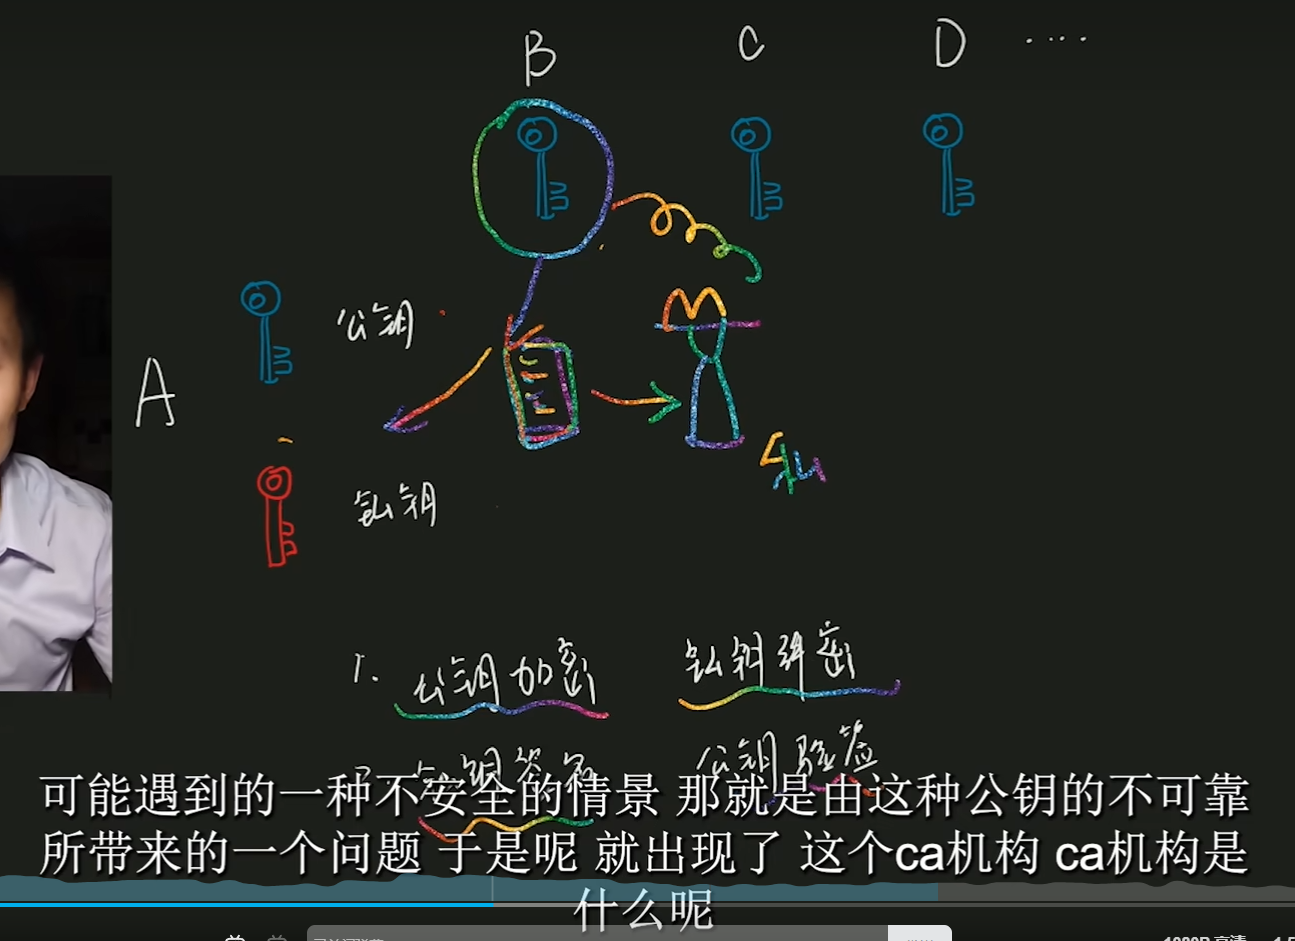 B C D ....
公钥
A
私钥
1. 公钥加密 私钥解密
2. 私钥签名 公钥验签
可能遇到的一种不安全的情景 那就是由这种公钥的不可靠
所带来的一个问题 于是呢 就出现了 这个ca机构 ca机构是
什么呢
1080P 高清